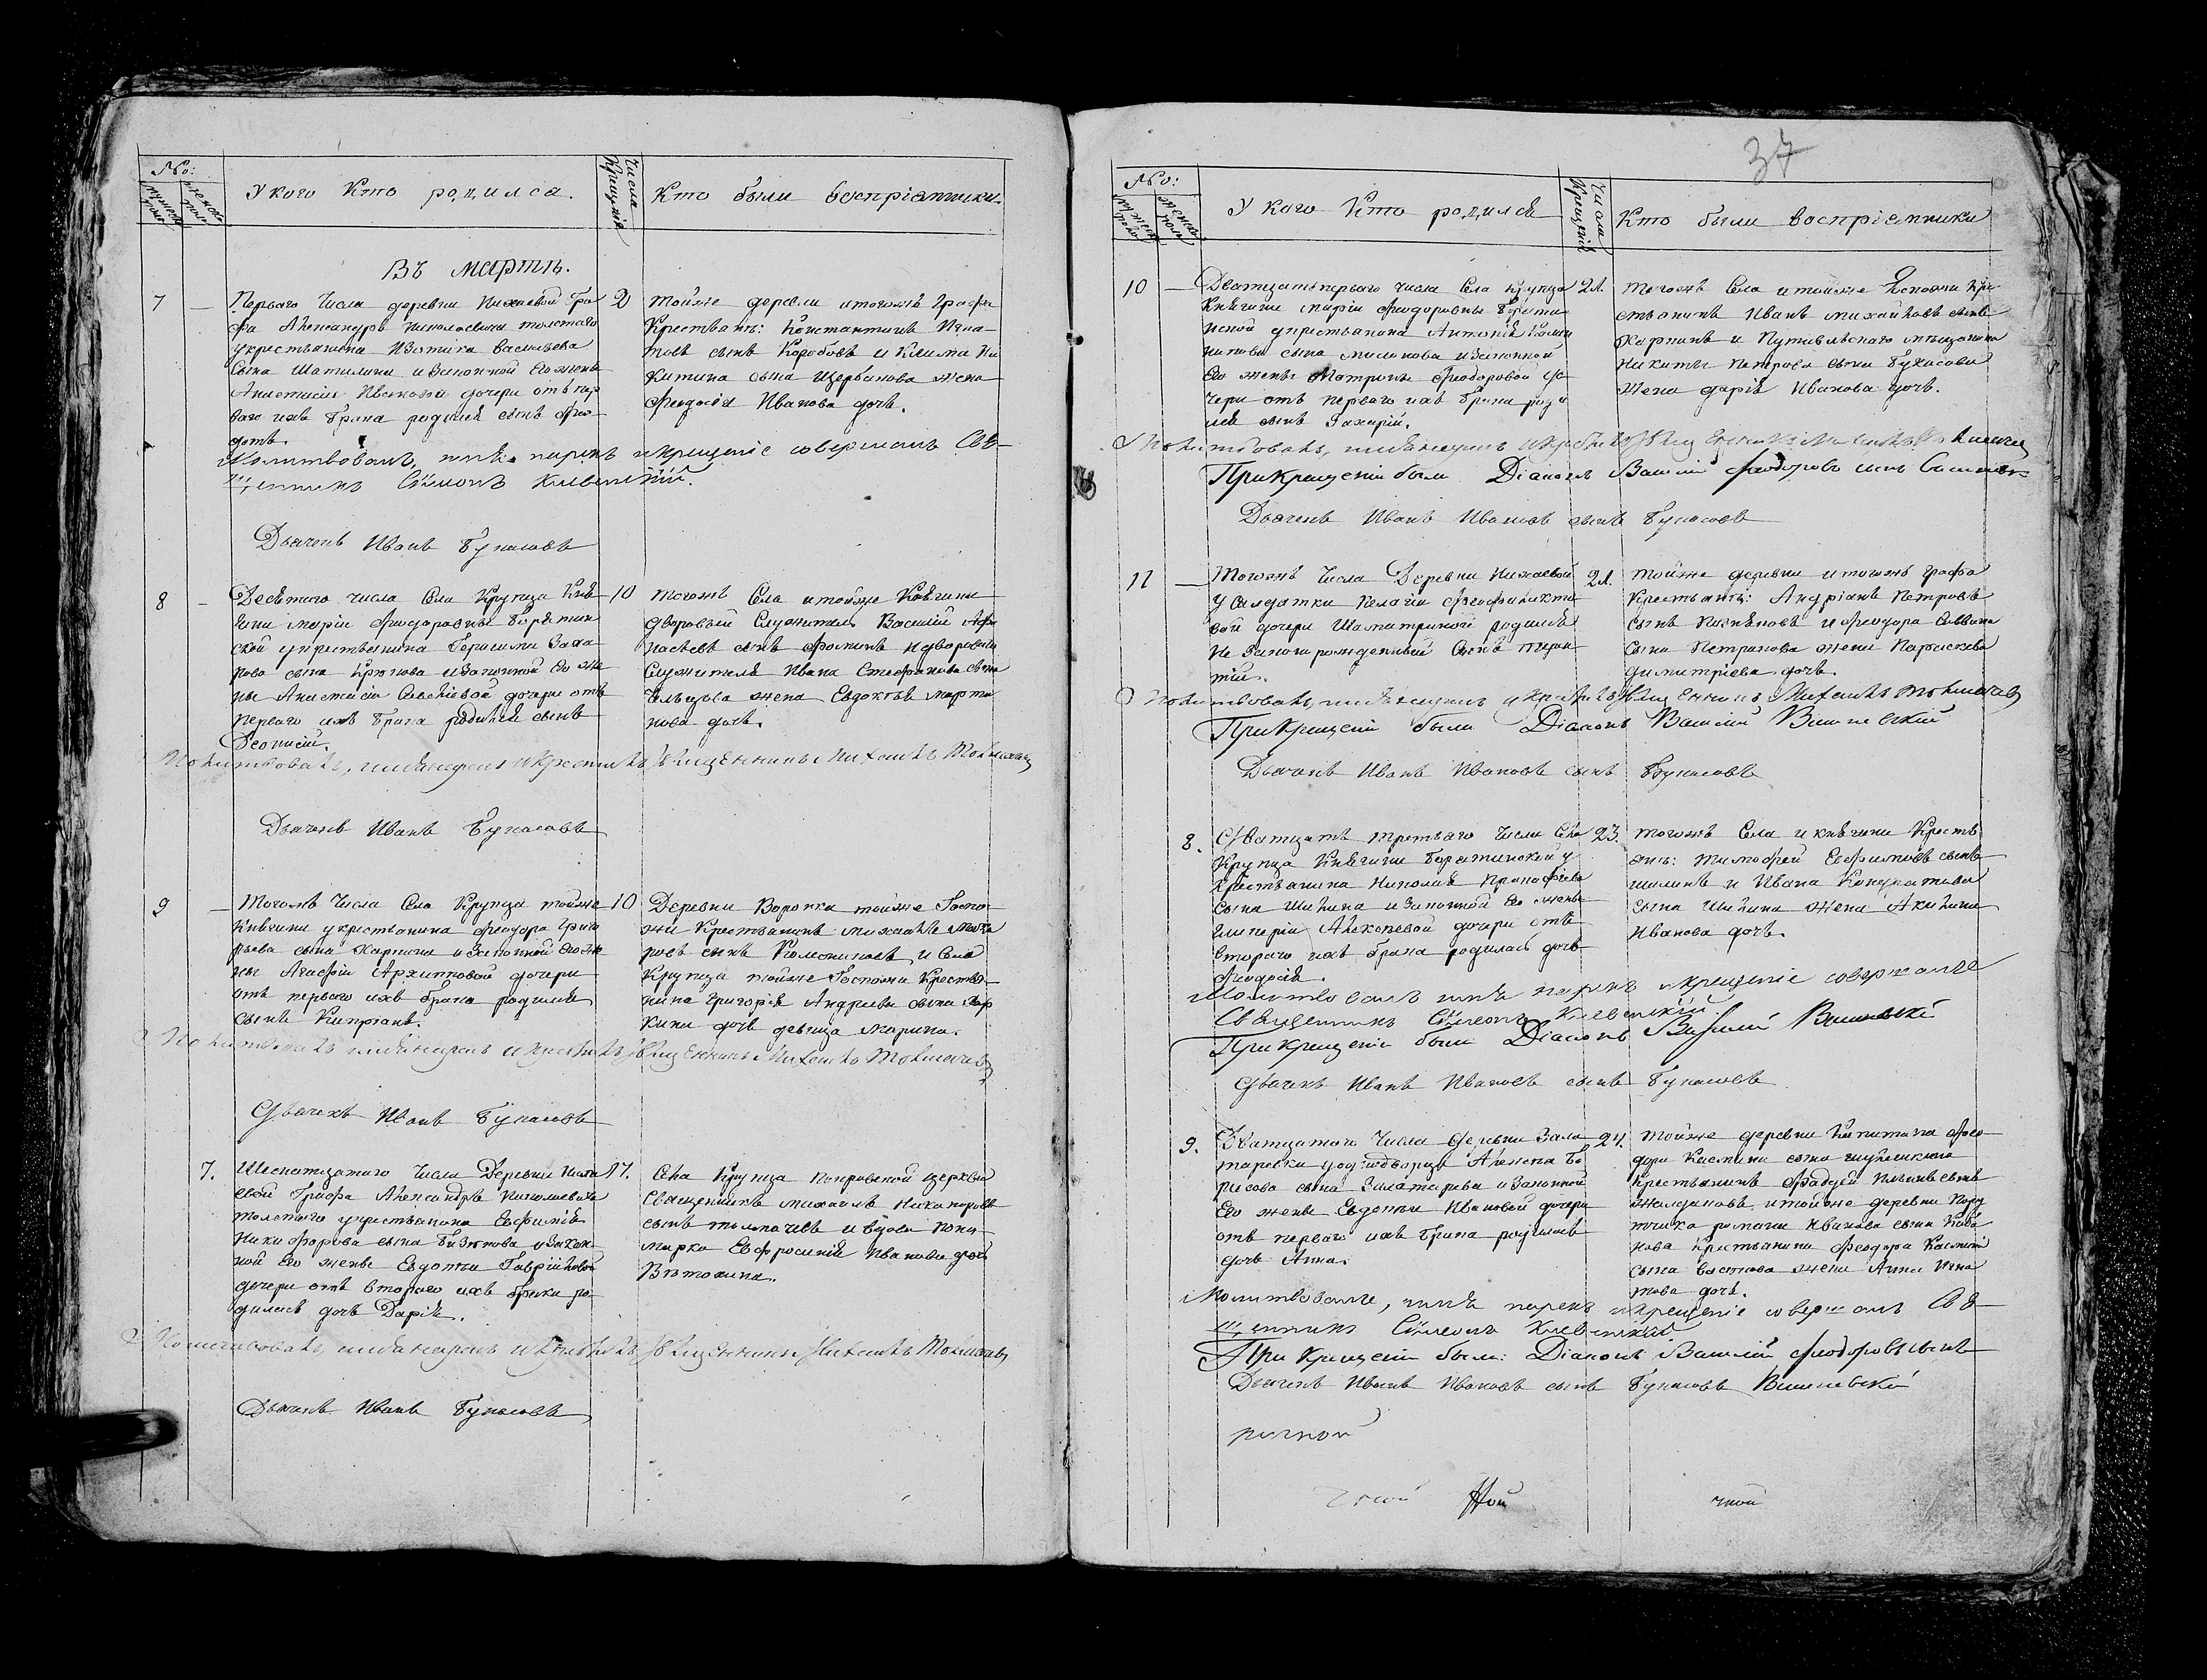 №:
мужеска пола
женска пола
У кого Кто родился.
Числа Крещенія
Кто были воспріемники.
Въ Мартѣ.
7 — Перваго Числа деревни Нихаевой Гра
фа Александра Николаевича толстаго
у крестьянина Изотика васильева
Сына Шатилина и законной Его жены
Анастасіи Ивановой дочери отъ пер
ваго ихъ брака родился сынъ Фео
дотъ.
2 тойже деревни и тогожъ Графа
Крестьянъ: Константинъ Игна
товъ сынъ Коробовъ и Климта Ни
китина сына Щербакова жена
Феодосія Иванова дочь.
Молитвовалъ, имя нарекъ и крещеніе совершалъ Свя
щенникъ Симеонъ Клевенскій.
Дьячекъ Иванъ Букасовъ
8 — Десятаго числа Села Крупца Кня
гини Маріи Феодоровны Барятин
ской у крестьянина Герасима Заха
рова сына Крюкова и законной Его же
ны Анастасіи Савельевой дочери отъ
перваго ихъ брака родился сынъ
Деонисій.
10 тогожъ Села и тойже Княгини
дворовый Служитель Василій Афа
насьевъ сынъ Фоминъ и двороваго
Служителя Ивана Стефанова сына
Ельцова жена Евдокія Марты
нова дочь.
Молитвовалъ, имя нарекъ и крестилъ Священникъ Михаилъ Толмачевъ
Дьячекъ Иванъ Букасовъ
9 — Тогожъ Числа Села Крупца тойже
Княгини у крестьянина Феодора Григо
рьева сына Карпина и законной Его же
ны Агафіи Архиповой дочери
отъ перваго ихъ брака родился
сынъ Кипріанъ.
10 Деревни Воронка тойже Госпо
жи Крестьянинъ Михаилъ
ровъ сынъ и Села
Крупца тойже Госпожи Крестья
нина Григорія Андреева сына Кар
пина дочь девица Марина.
Молитвовалъ имя нарекъ и крестилъ Священникъ Михаилъ Толмачевъ
Дьячекъ Иванъ Букасовъ
7. Шеснатцатаго Числа Деревни Ниха
евой Графа Александра Николаевича
толстаго у крестьянина Евфимія
Никифорова сына и закон
ной Его жены Евдокіи Гавріиловой
дочери отъ втораго ихъ брака ро
дилась дочь Дарія.
17. Села Крупца Покровской церкви
Священникъ Михаилъ Никаноровъ
сынъ толмачевъ и вдова Поно
марка Евфросинія Иванова дочь
Молитвовалъ, имя нарекъ и крестилъ Священникъ Михаилъ Толмачевъ
Дьячекъ Иванъ Букасовъ
37
№:
мужеска пола
женска пола
У кого Кто родился
Числа Крещенія
Кто были воспріемники
10 — Дватцать перваго числа Села Крупца
Княгини Маріи Феодоровны Баряти
нской у крестьянина Антонія
сына и законной
Его жены Матроны Феодоровой до
чери отъ перваго ихъ брака роди
лся сынъ Захарій.
21. Тогожъ Села и тойже Госпожи Кре
стьянинъ Иванъ Михайловъ сынъ
Карпинъ и Путивльскаго мещанина
Никиты Петрова сына Букасова
жена Дарія Иванова дочь.
Молитвовалъ, имя нарекъ и крестилъ Священникъ Михаилъ Толмачевъ
При Крещеніи были Діаконъ Василій Феодоровъ сынъ
Дьячекъ Иванъ Ивановъ сынъ Букасовъ
11 — Тогожъ Числа Деревни Нихаевой
у Салдатки Пелагіи Феофилактов
вой дочери родился
не законорожденный Сынъ
21. тойже деревни и тогожъ Графа
Крестьянъ: Андріанъ Петровъ
сынъ и Феодора
сына жена Параскева
Димитріева дочь.
Молитвовалъ, имя нарекъ и крестилъ Священникъ Михаилъ Толмачевъ
При Крещеніи были Діаконъ Василій Вишневскій
Дьячекъ Иванъ Ивановъ сынъ Букасовъ
8. Дватцать третьяго Числа Села
Крупца Княгини Барятинской у
Крестьянина Николая Прокофіева
сына Шилина и законной Его жены
Гликеріи Алексеевой дочери отъ
втораго ихъ брака родилась дочь
Феодосія.
23. тогожъ Села и княгини Кресть
янъ: Тимофей Евфимовъ сынъ
Шилинъ и Ивана Кондратьева
сына Шилина жена Акилина
Иванова дочь.
Молитвовалъ имя нарекъ и крещеніе совершалъ
Священникъ Симеонъ Клевенскій.
При Крещеніи были Діаконъ Василій Вишневскій
Дьячекъ Иванъ Ивановъ сынъ Букасовъ
9. Дватцатаго Числа Деревни Зала
таревки у однодворца Алексея Бо
рисова сына Залатарева и законной
Его жены Евдокіи Ивановой дочери
отъ перваго ихъ брака родилась
дочь Анна.
24. тойже деревни Фео
дора сына
крестьянинъ Фаддей сынъ
и тойже деревни
Иванова сына
Крестьянина Феодора
сына жена Анна Игна
това дочь.
Молитвовалъ, имя нарекъ и крещеніе совершалъ Свя
щенникъ Симеонъ Клевенскій
При Крещеніи были: Діаконъ Василій Феодоровъ сынъ
Дьячекъ Иванъ Ивановъ сынъ Букасовъ Вишневскій